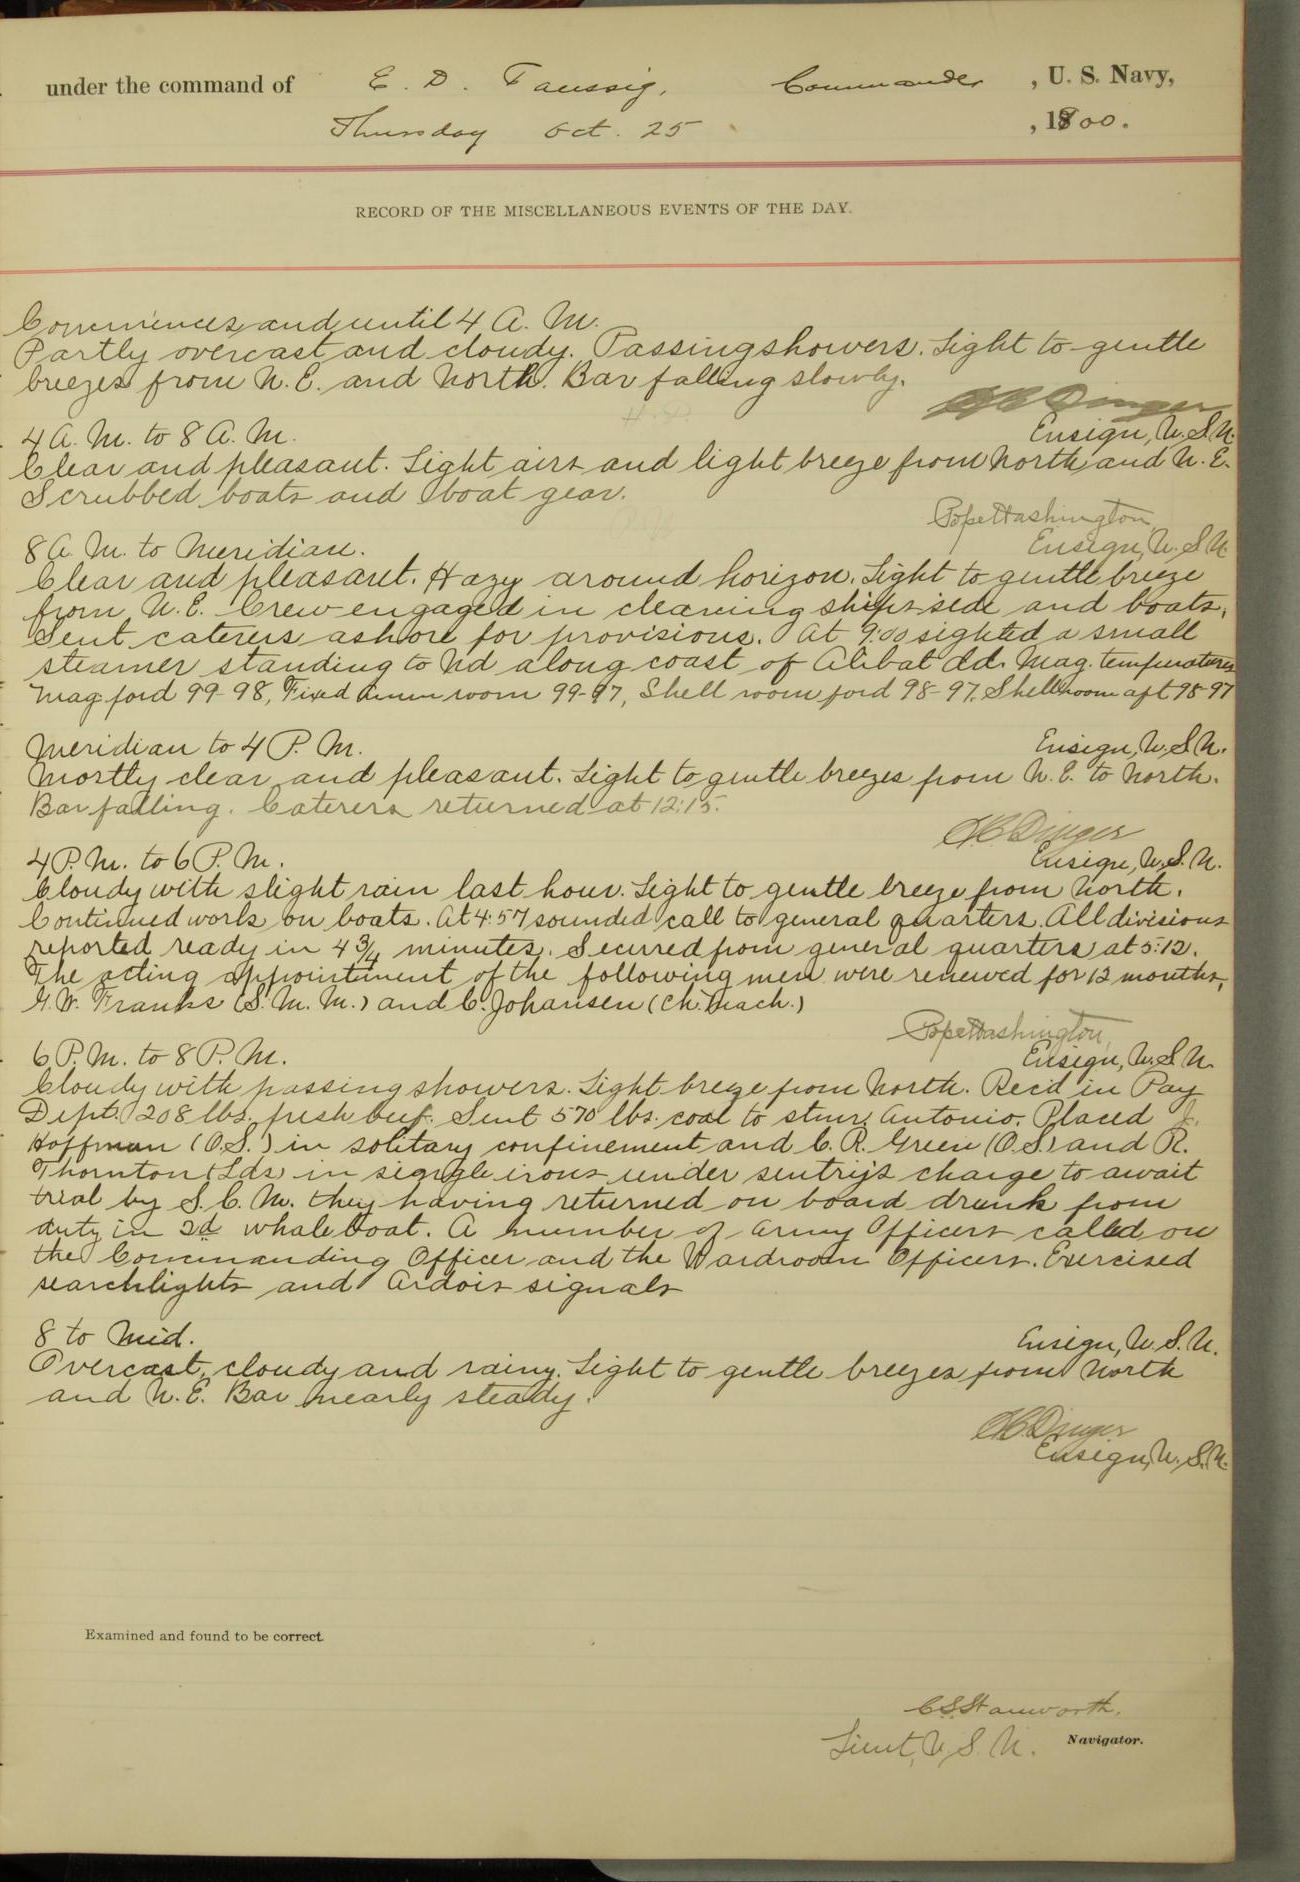 under the command of E. D. Taussig, Commander, U. S. Navy,
Thursday Oct. 25, 1900.
RECORD OF THE MISCELLANEOUS EVENTS OF THE DAY.
Commences and until 4 A. M.
Partly overcast and cloudy. Passing showers. Light to gentle
breezes from N. E. and North. Bar falling slowly.
H C Dinger
Ensign, U. S. N.
4 A. M. to 8 A. M.
Clear and pleasant. Light airs and light breeze from North and N. E.
Scrubbed boats and boat gear.
Pope Washington,
Ensign, U. S. N.
8 A. M. to Meridian.
Clear and pleasant. Hazy around horizon. Light to gentle breeze
from N. E. Crew engaged in cleaning ship's side and boats.
Sent caterers ashore for provisions. At 9:00 sighted a small
steamer standing to Nd along coast of Alibat Id. Mag. temperatures
Mag. ford 99-98, Fixed amm room 99-97, Shell room ford 98-97. Shell room aft 98-97
Ensign, U. S. N.
Meridian to 4 P. M.
Mostly clear and pleasant. Light to gentle breezes from N. E. to North.
Bar falling. Caterers returned at 12:15.
H C Dinger
Ensign, U. S. N.
4 P. M. to 6 P. M.
Cloudy with slight rain last hour. Light to gentle breeze from North.
Continued work on boats. At 4:57 sounded call to general quarters. All divisions
reported ready in 4 3/4 minutes. Secured from general quarters at 5:12.
The acting appointment of the following men were renewed for 12 months,
G. W. Franks (S. M. M.) and C. Johansen (Ch. Mach.)
Pope Washington,
Ensign, U. S. N.
6 P. M. to 8 P. M.
Cloudy with passing showers. Light breeze from North. Rec'd in Pay
Dept. 208 lbs. fresh beef. Sent 570 lbs. coal to stmr. Antonio. Placed J.
Hoffman (O. S.) in solitary confinement and C. R. Green (O. S.) and R.
Thornton (Lds) in single irons under sentry's charge to await
trial by S. C. M. they having returned on board drunk from
duty in 2d whaleboat. A number of Army Officers called on
the Commanding Officer and the Wardroom Officers. Exercised
searchlights and Ardois signals
Ensign, U. S. N.
8 to Mid.
Overcast, cloudy and rainy. Light to gentle breezes from North
and N. E. Bar nearly steady.
H C Dinger
Ensign, U. S. N.
Examined and found to be correct.
C S Stanworth.
Lieut, U. S. N. Navigator.